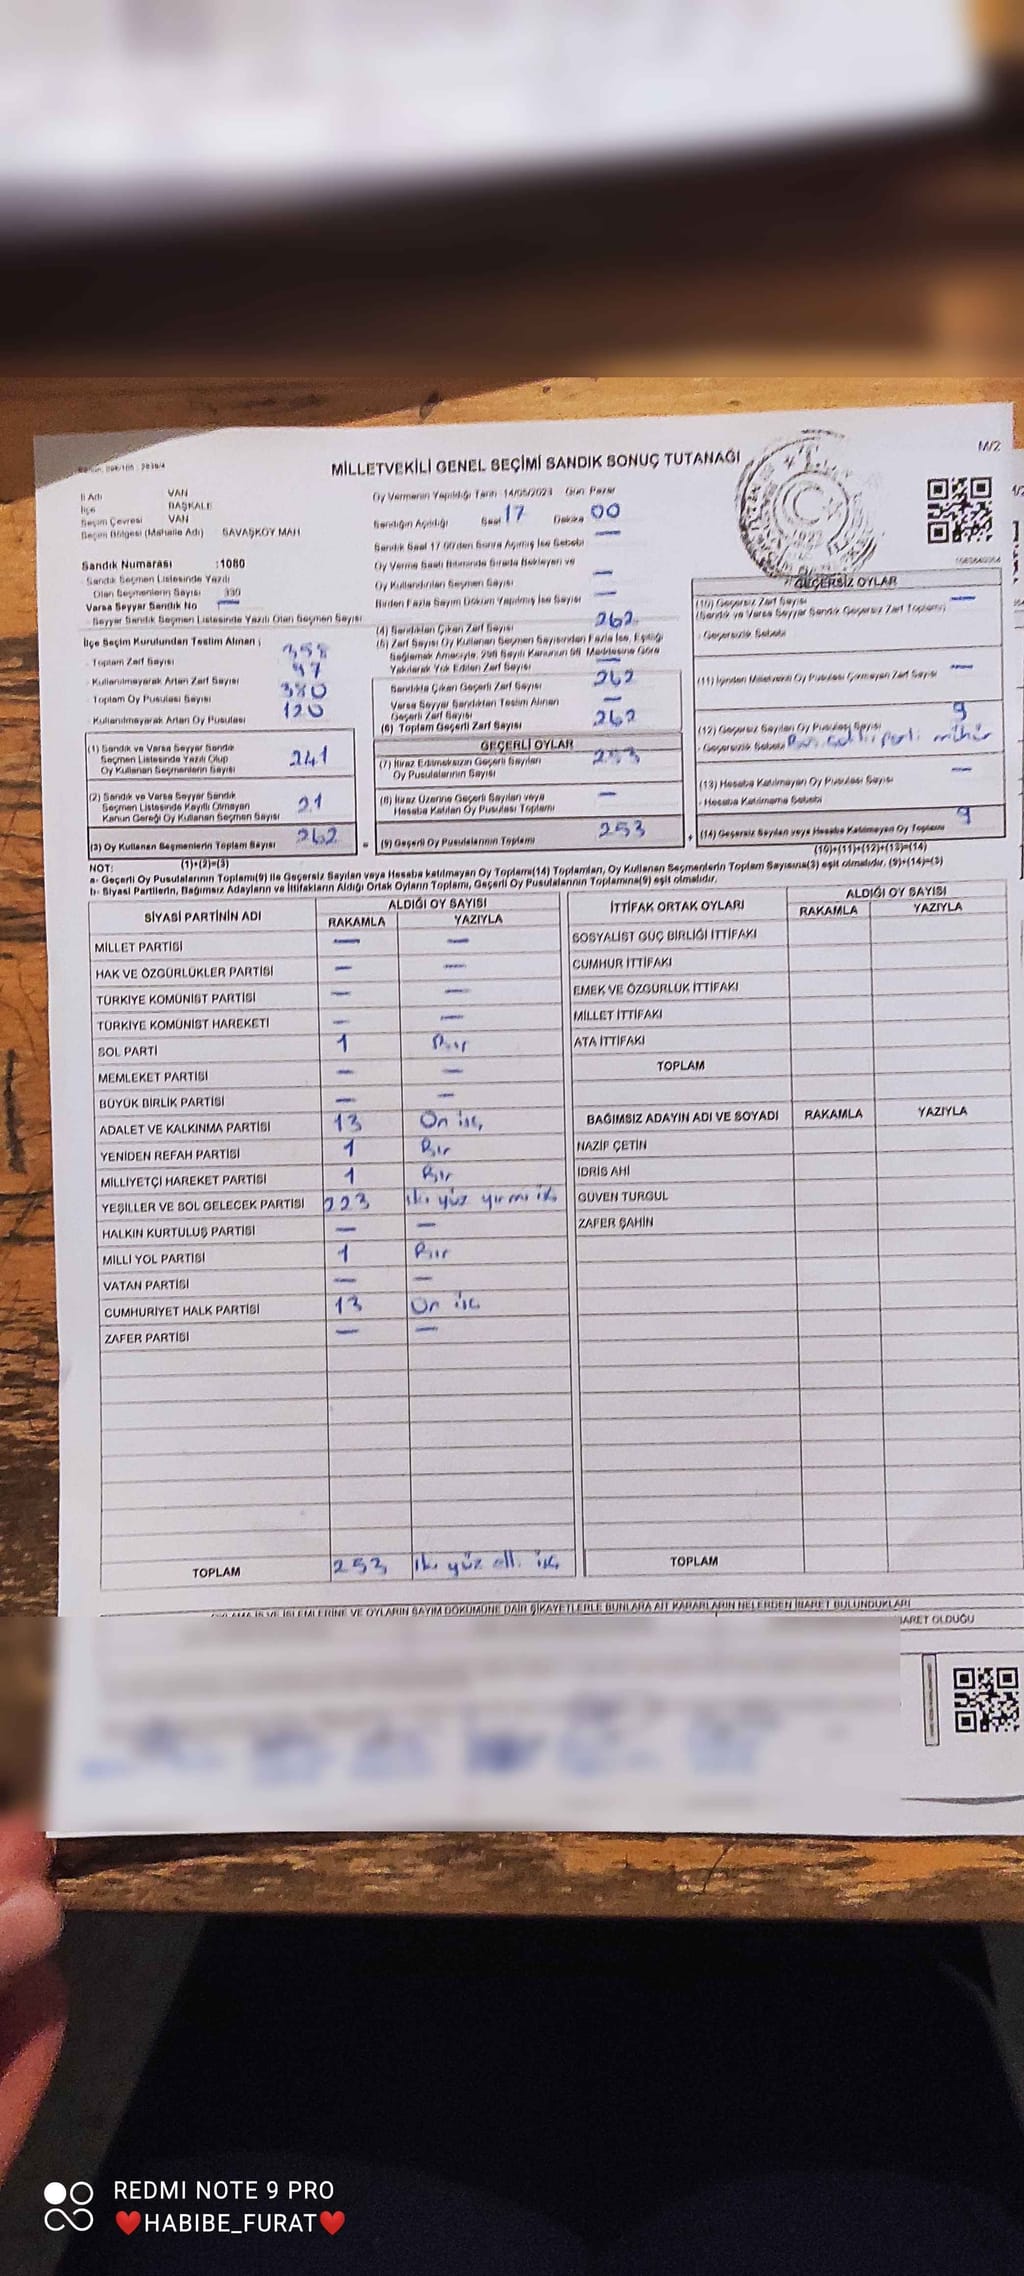 M/2
MİLLETVEKİLİ GENEL SEÇİMİ SANDIK SONUÇ TUTANAĞI
İl Adı VAN
İlçe BAŞKALE
Seçim Çevresi VAN
Seçim Bölgesi (Mahalle Adı) SAVAŞKÖY MAH
Sandık Numarası :1080
Sandık Seçmen Listesinde Yazılı
Olan Seçmenlerin Sayısı 330
Varsa Seyyar Sandık No —
Seyyar Sandık Seçmen Listesinde Yazılı Olan Seçmen Sayısı
İlçe Seçim Kurulundan Teslim Alınan ;
Toplam Zarf Sayısı
Kullanılmayarak Artan Zarf Sayısı
Toplam Oy Pusulası Sayısı 380
Kullanılmayarak Artan Oy Pusulası 120
(1) Sandık ve Varsa Seyyar Sandık
Seçmen Listesinde Yazılı Olup
Oy Kullanan Seçmenlerin Sayısı 241
(2) Sandık ve Varsa Seyyar Sandık
Seçmen Listesinde Kayıtlı Olmayan
Kanun Gereği Oy Kullanan Seçmen Sayısı 21
(3) Oy Kullanan Seçmenlerin Toplam Sayısı 262
(1)+(2)=(3)
Oy Vermenin Yapıldığı Tarih : 14/05/2023 Gün: Pazar
Sandığın Açıldığı Saat 17 Dakika 00
Sandık Saat 17.00'den Sonra Açılmış İse Sebebi —
Oy Verme Saati Bitiminde Sırada Bekleyen ve
Oy Kullandırılan Seçmen Sayısı —
Birden Fazla Sayım Döküm Yapılmış İse Sayısı —
(4) Sandıktan Çıkan Zarf Sayısı 262
(5) Zarf Sayısı Oy Kullanan Seçmen Sayısından Fazla İse, Eşitliği
Sağlamak Amacıyla, 298 Sayılı Kanunun 98. Maddesine Göre
Yakılarak Yok Edilen Zarf Sayısı —
Sandıkta Çıkan Geçerli Zarf Sayısı 262
Varsa Seyyar Sandıktan Teslim Alınan
Geçerli Zarf Sayısı —
(6) Toplam Geçerli Zarf Sayısı 262
GEÇERLİ OYLAR
(7) İtiraz Edilmeksizin Geçerli Sayılan
Oy Pusulalarının Sayısı 253
(8) İtiraz Üzerine Geçerli Sayılan veya
Hesaba Katılan Oy Pusulası Toplamı —
(9) Geçerli Oy Pusulalarının Toplamı 253
GEÇERSİZ OYLAR
(10) Geçersiz Zarf Sayısı —
(Sandık ve Varsa Seyyar Sandık Geçersiz Zarf Toplamı)
- Geçersizlik Sebebi
(11) İçinden Milletvekili Oy Pusulası Çıkmayan Zarf Sayısı —
(12) Geçersiz Sayılan Oy Pusulası Sayısı 9
- Geçersizlik Sebebi mühür
(13) Hesaba Katılmayan Oy Pusulası Sayısı —
- Hesaba Katılmama Sebebi
(14) Geçersiz Sayılan veya Hesaba Katılmayan Oy Toplamı 9
(10)+(11)+(12)+(13)=(14)
NOT:
a- Geçerli Oy Pusulalarının Toplamı(9) ile Geçersiz Sayılan veya Hesaba katılmayan Oy Toplamı(14) Toplamları, Oy Kullanan Seçmenlerin Toplam Sayısına(3) eşit olmalıdır. (9)+(14)=(3)
b- Siyasi Partilerin, Bağımsız Adayların ve İttifakların Aldığı Ortak Oyların Toplamı, Geçerli Oy Pusulalarının Toplamına(9) eşit olmalıdır.
SİYASİ PARTİNİN ADI ALDIĞI OY SAYISI
RAKAMLA YAZIYLA
MİLLET PARTİSİ — —
HAK VE ÖZGÜRLÜKLER PARTİSİ — —
TÜRKİYE KOMÜNİST PARTİSİ — —
TÜRKİYE KOMÜNİST HAREKETİ — —
SOL PARTİ 1 Bir
MEMLEKET PARTİSİ — —
BÜYÜK BİRLİK PARTİSİ — —
ADALET VE KALKINMA PARTİSİ 13 On üç
YENİDEN REFAH PARTİSİ 1 Bir
MİLLİYETÇİ HAREKET PARTİSİ 1 Bir
YEŞİLLER VE SOL GELECEK PARTİSİ 223 iki yüz yirmi üç
HALKIN KURTULUŞ PARTİSİ — —
MİLLİ YOL PARTİSİ 1 Bir
VATAN PARTİSİ — —
CUMHURİYET HALK PARTİSİ 13 On üç
ZAFER PARTİSİ — —
TOPLAM 253 iki yüz elli üç
İTTİFAK ORTAK OYLARI ALDIĞI OY SAYISI
RAKAMLA YAZIYLA
SOSYALİST GÜÇ BİRLİĞİ İTTİFAKI
CUMHUR İTTİFAKI
EMEK VE ÖZGÜRLÜK İTTİFAKI
MİLLET İTTİFAKI
ATA İTTİFAKI
TOPLAM
BAĞIMSIZ ADAYIN ADI VE SOYADI RAKAMLA YAZIYLA
NAZİF ÇETİN
İDRİS AHİ
GÜVEN TURGUL
ZAFER ŞAHİN
TOPLAM
İŞ VE İŞLEMLERİNE VE OYLARIN SAYIM DÖKÜMÜNE DAİR ŞİKAYETLERLE BUNLARA AİT KARARLARIN NELERDEN İBARET BULUNDUKLARI
OLDUĞU
REDMI NOTE 9 PRO
❤️HABIBE_FURAT❤️